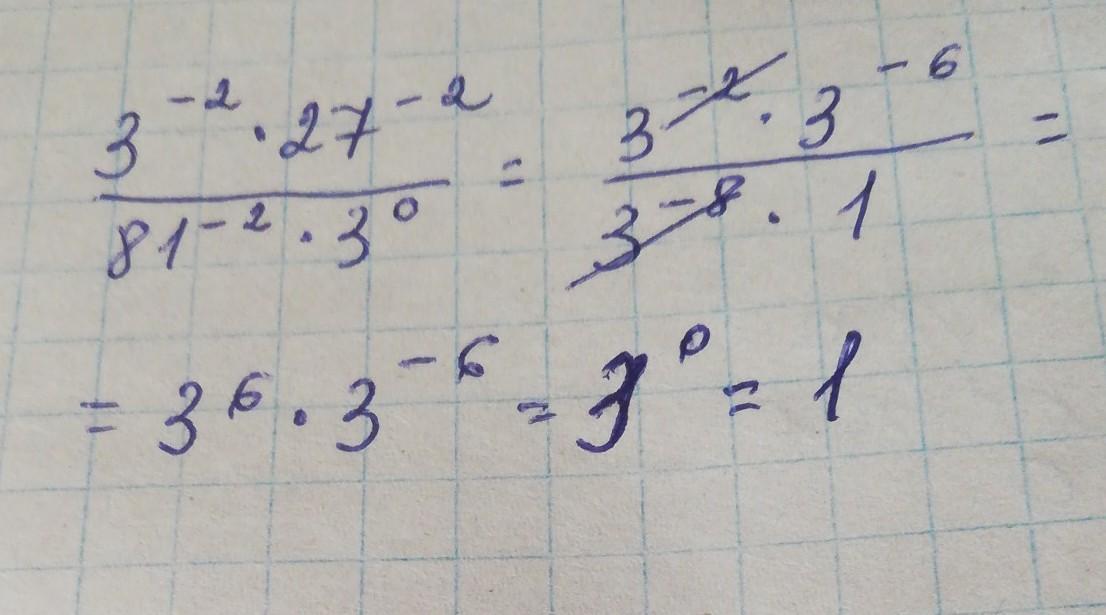 3⁻² · 27⁻² / 81⁻² · 3⁰ = 3⁻² · 3⁻⁶ / 3⁻⁸ · 1 =
= 3⁶ · 3⁻⁶ = 3⁰ = 1